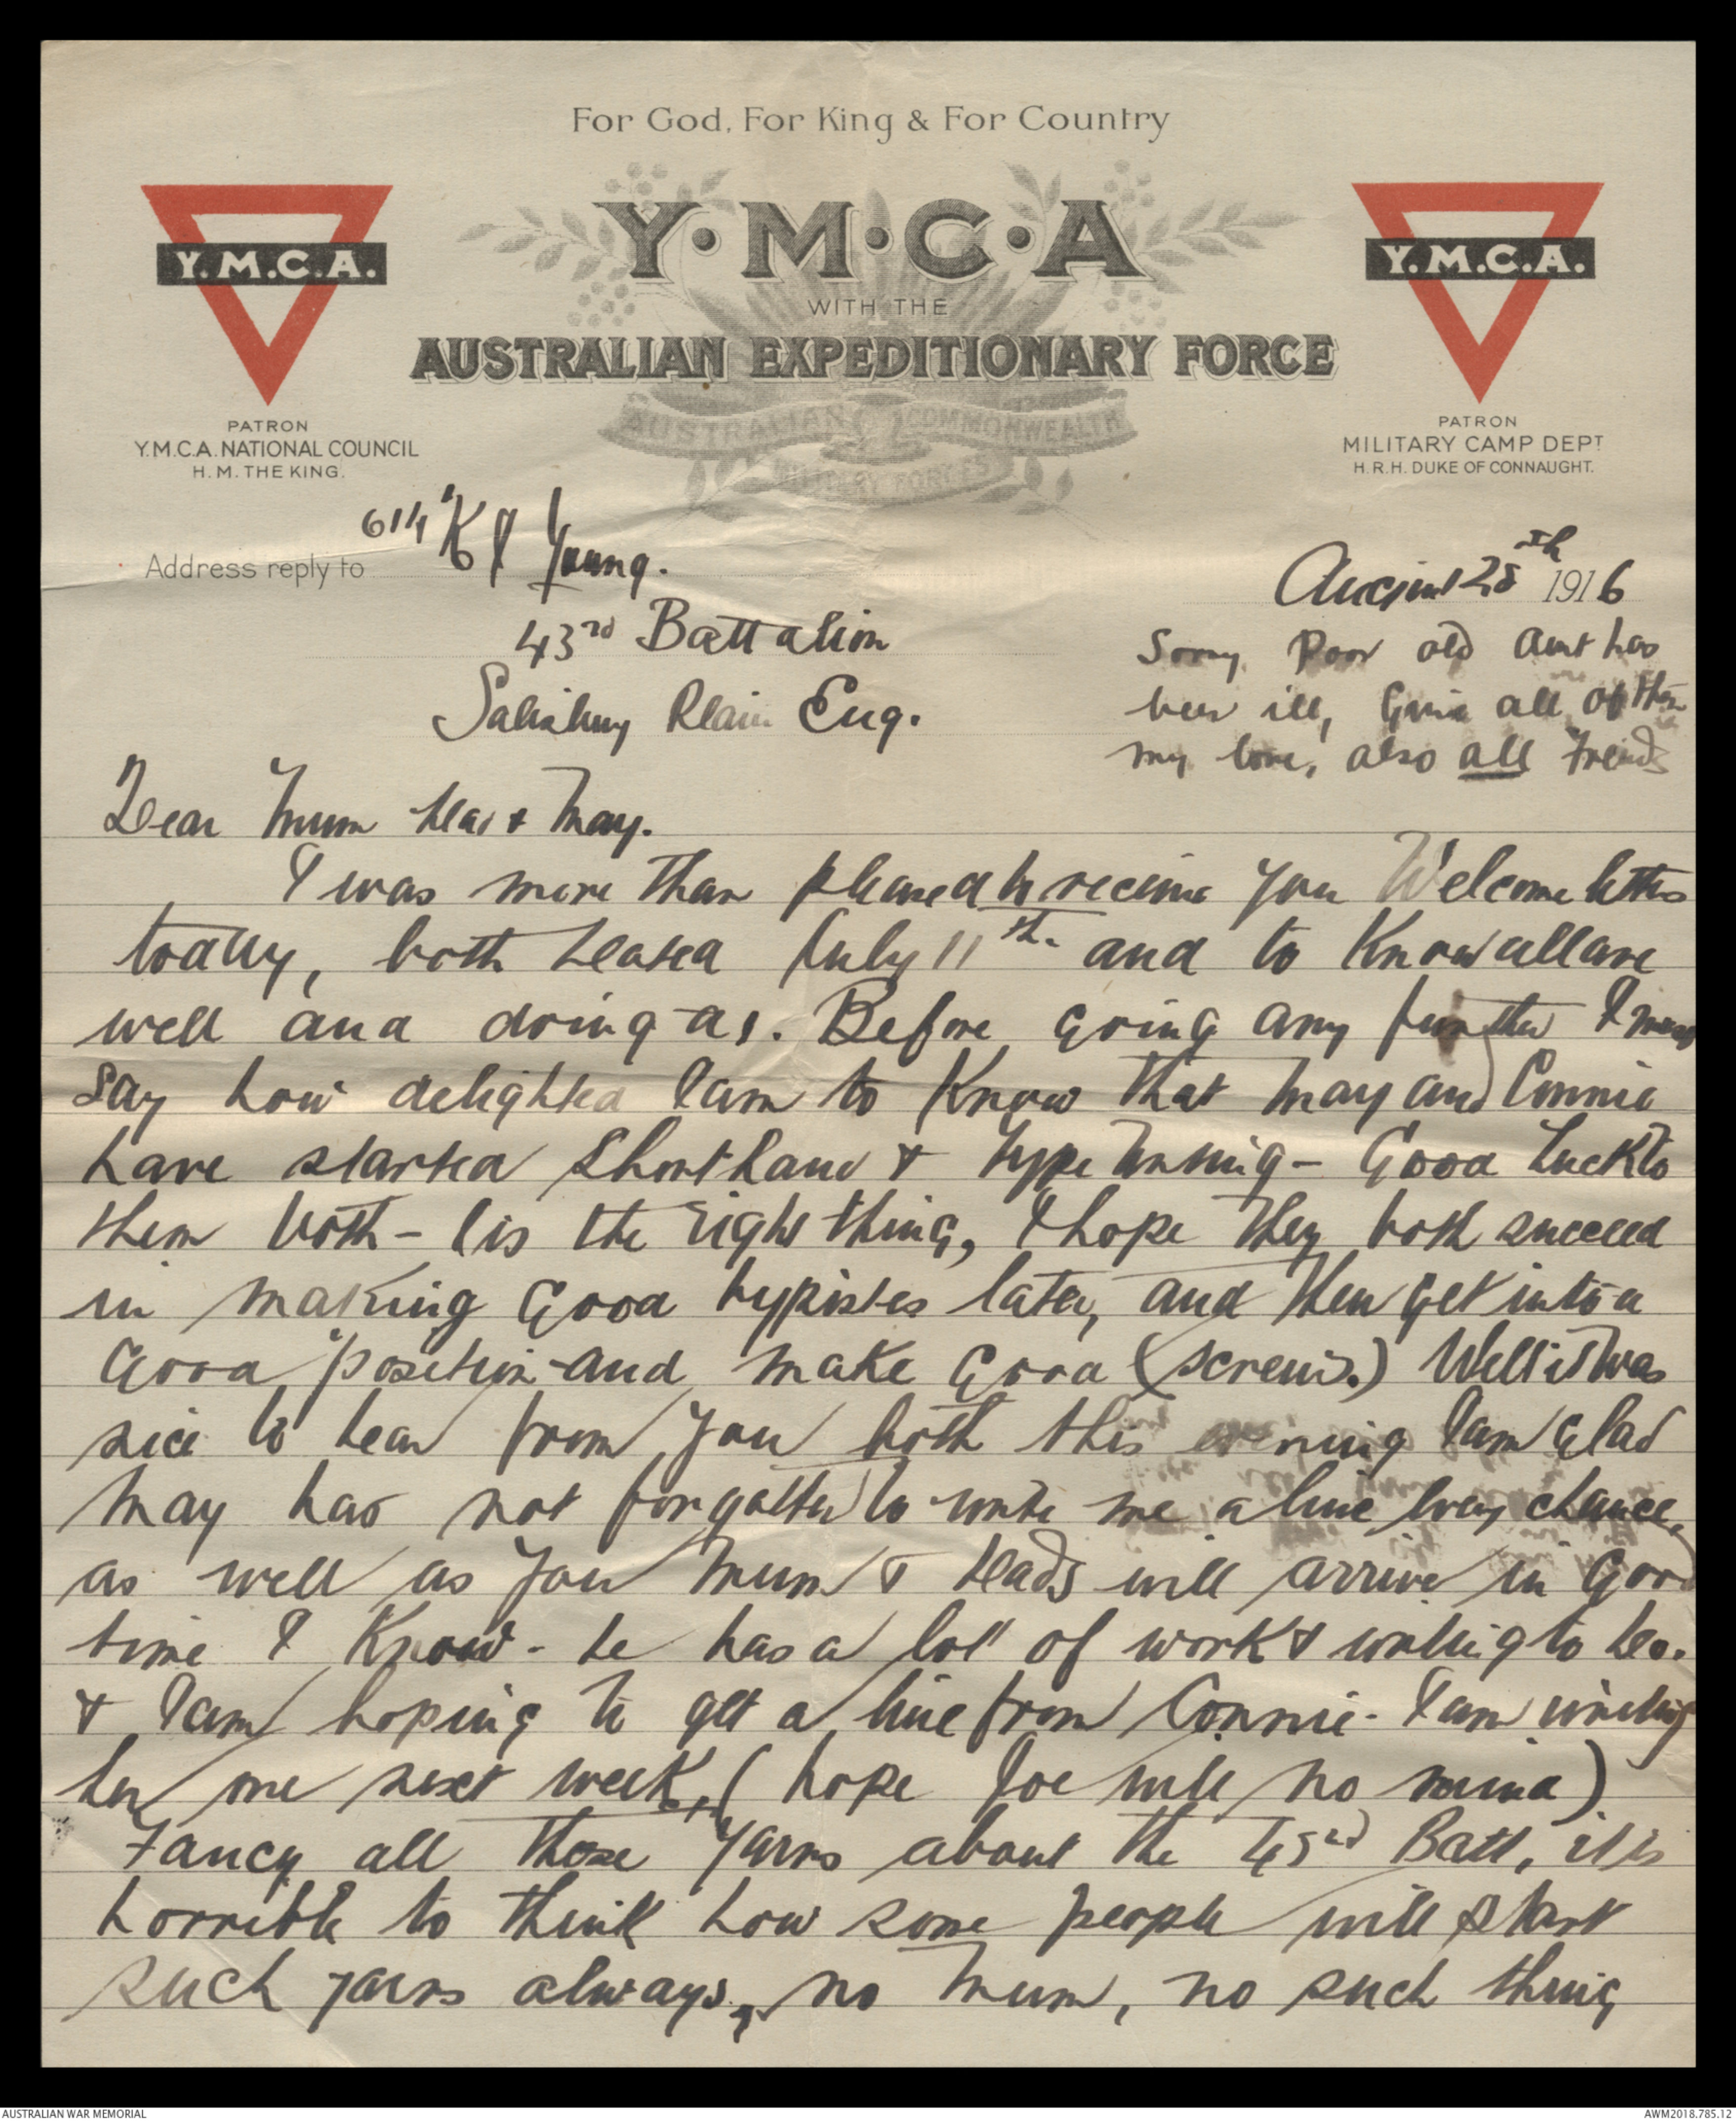 For God, For King & For Country
Y.M.C.A.
Y·M·C·A
WITH THE
AUSTRALIAN EXPEDITIONARY FORCE
AUSTRALIAN COMMONWEALTH
MILITARY FORCES
PATRON
Y.M.C.A. NATIONAL COUNCIL
H.M. THE KING.
Y.M.C.A.
PATRON
MILITARY CAMP DEPT
H.R.H. DUKE OF CONNAUGHT.
Address reply to 614 K J Young.
43rd Battalion
Salisbury Plain Eng.
August 28th 1916
Sorry Poor old Aunt has
been ill, Give all of them
my love, also all Friends
Dear Mum Dad & May.
I was more than pleased to receive your Welcome letters
today, both dated July 11th. and to Know all are
well and doing as. Before going any further I must
say how delighted I am to Know that May and Connie
have started Shorthand & type writing - Good Luck to
them both - tis the right thing, I hope they both succeed
in making Good typistes later, and then get into a
Good position and make Good (screws.) Well it was
nice to hear from you both this evening I am glad
May has not forgotten to write me a line every chance,
as well as you Mum & Dads will arrive in Good
time I Know - he has a lot of work & writing to do.
& I am hoping to get a line from Connie - I am writing
her one next week, (hope Joe will no mind)
Fancy all those yarns about the 43rd Batt, it is
horrible to think how some people will start
such yarns always, no Mum, no such thing
AUSTRALIAN WAR MEMORIAL
AWM2018.785.12